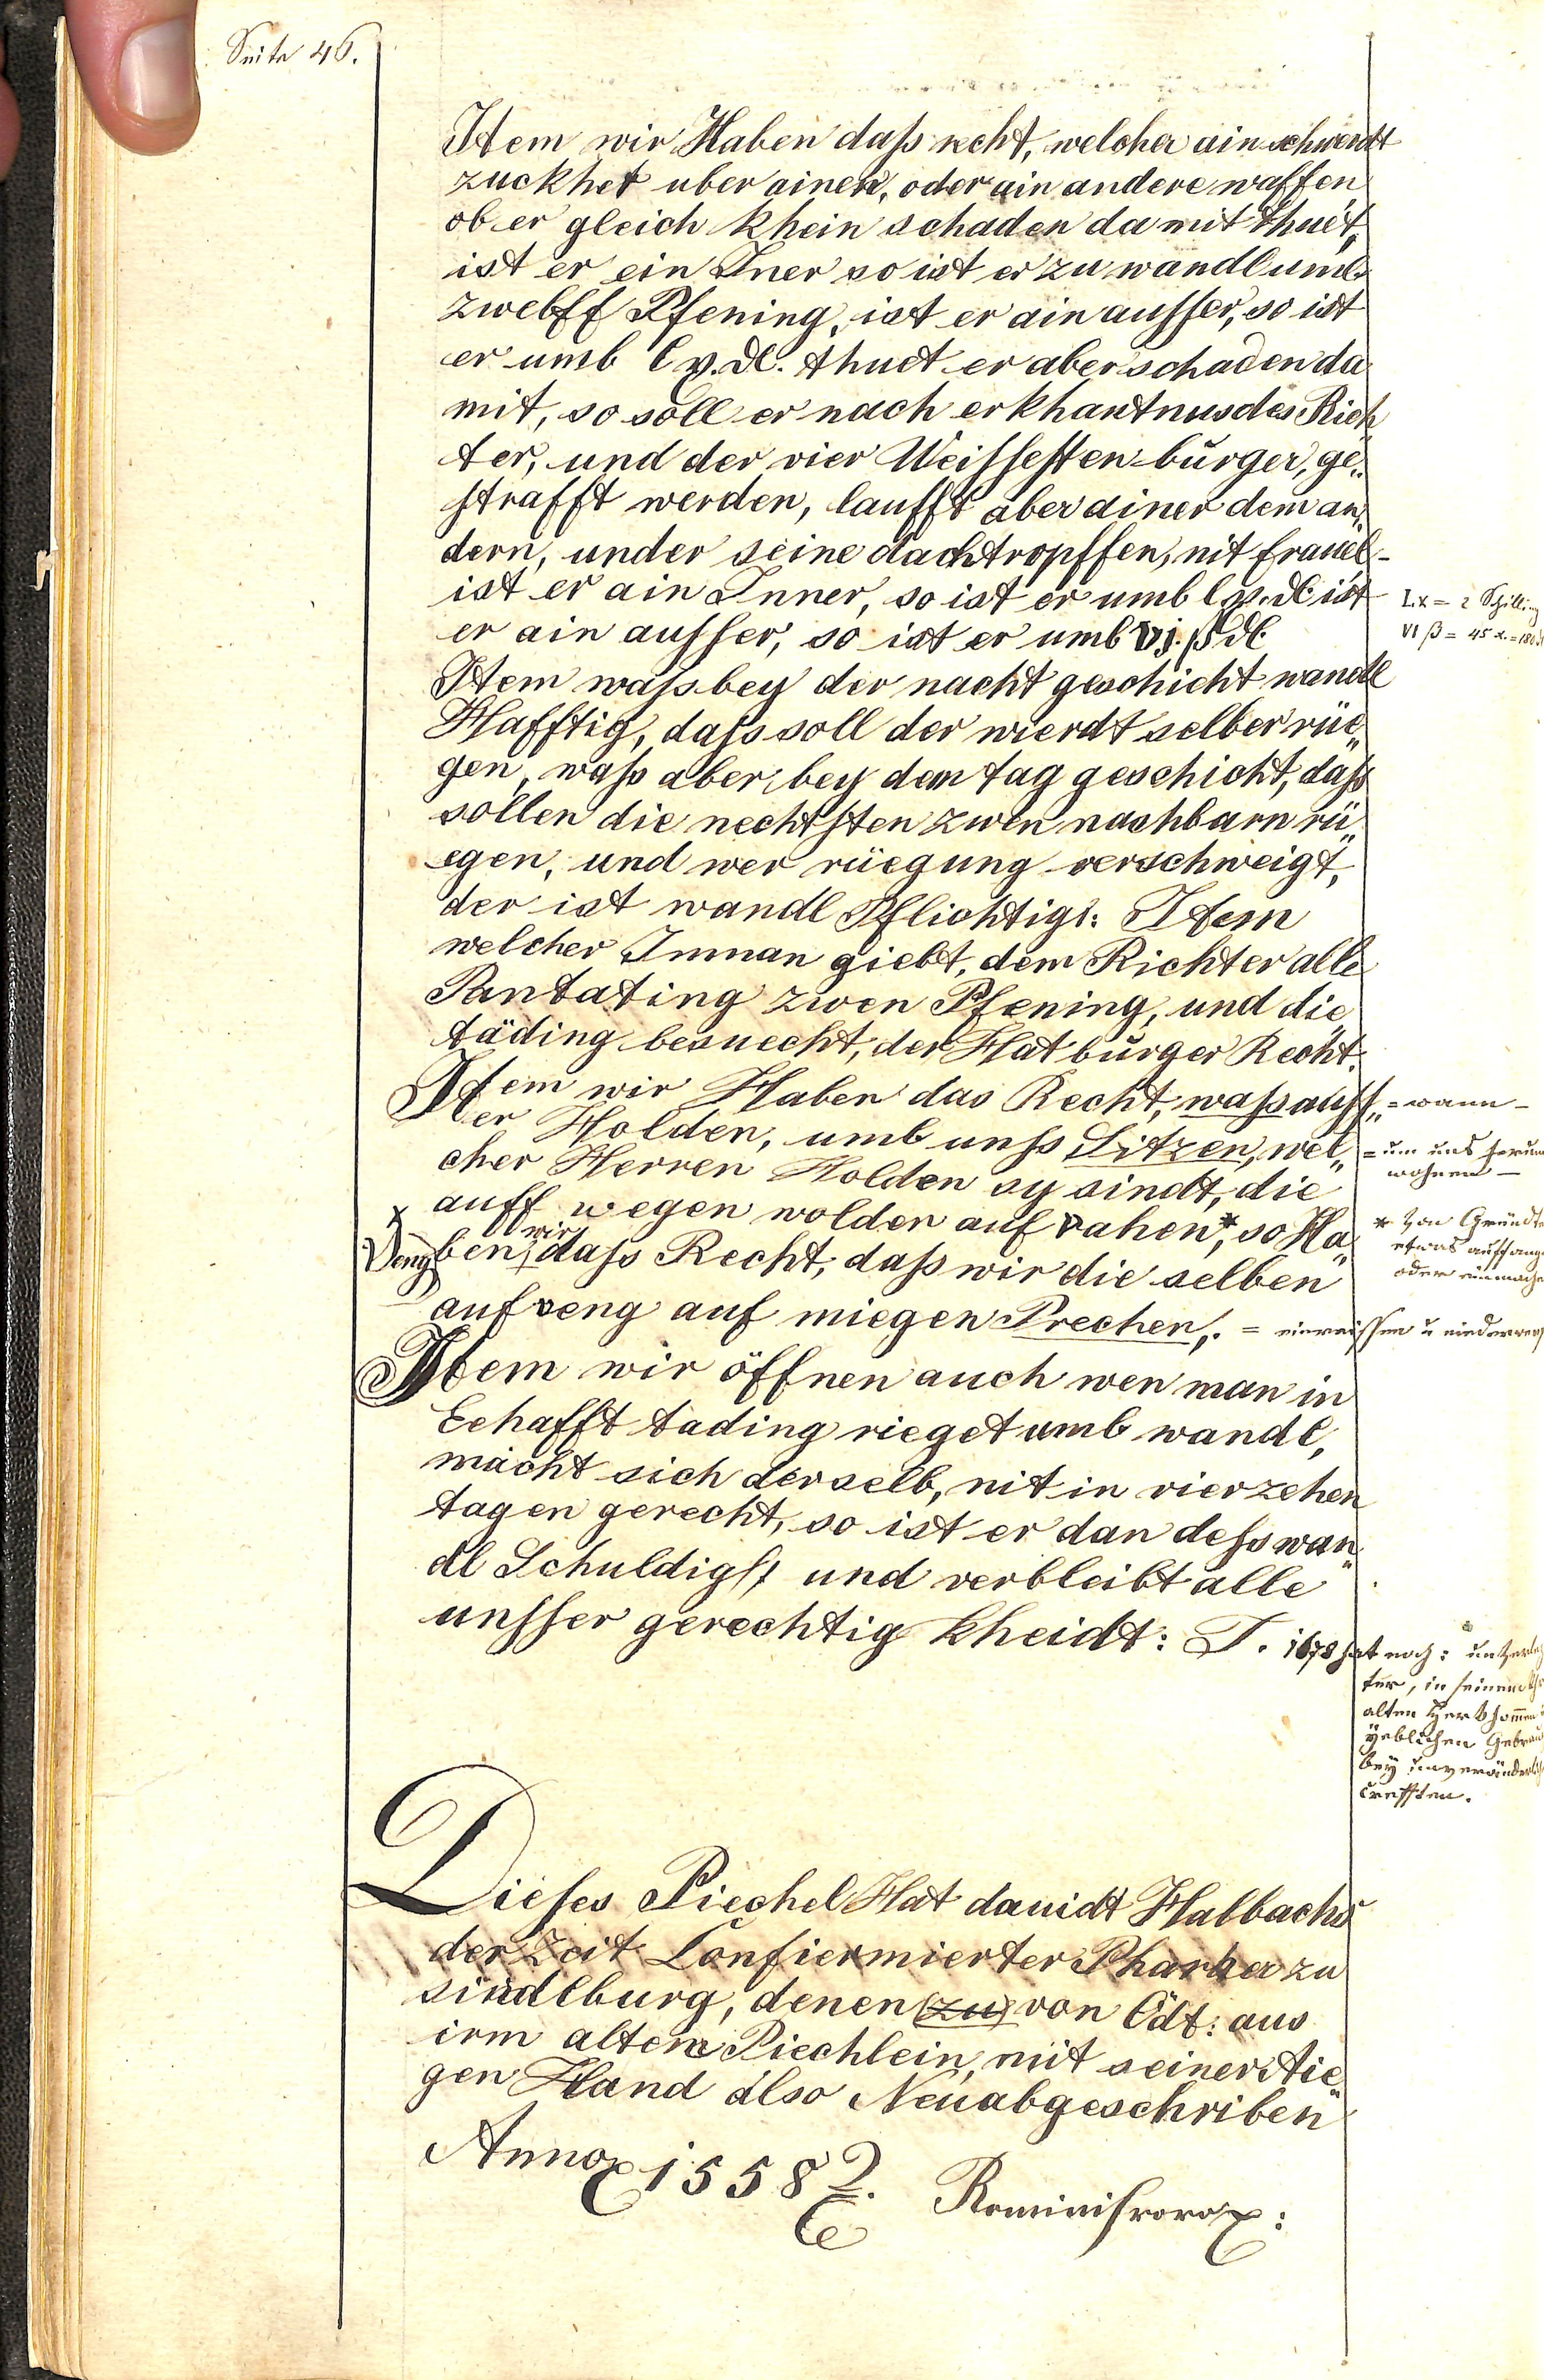 Seite 46.
Item wir Haben daß recht, welcher ain schwerdt
zuckhet uber ainen, oder ain andere waffen
ob er gleich khein schaden da mit thuet,
ist er ein Iner so ist er zu wandl umb
zwelff Pfening, ist er ain ausser, so ist
er umb lx. dl. thuet er aber schaden da
mit, so soll er nach erkhantnus des Rich„
ter, und der vier Weissesten bürger, ge„
strafft werden, laufft aber ainer dem an„
dern, under seine dachtropffen, mit frauel
ist er ain Inner, so ist er umb lx. dl. ist
er ain ausser, so ist er umb vj. ß dl.
Lx = 2 Schilling
VI ß = 45 x. = 180 dl
Item waß bey der nacht geschicht wandl
Hafftig, daß soll der wierdt selber rüe„
gen, waß aber bey dem tag geschicht, daß
sollen die nechtsten zwen nachbarn rü„
egen, und wer rüegung verschweigt,
der ist wandl Pflichtig: Item
welcher Inman giebt, dem Richter alle
Pantating zwen Pfening, und die
täding besuecht, der Hat bürger Recht.
Item wir Haben das Recht, waß auss„ = wann –
er Holden, umb unß Sitzen, wel„ = um uns herum
wohnen –
cher Herren Holden sy sindt, die
auff wegen wolden auf vahen*, so Ha„
* Von Gründten
etwas auffangen
oder einmachen
x Veng
ben wir daß Recht, daß wir die selben
aufveng auf miegen Prechen. = einreissen u niederwerf
Item wir öffnen auch wen man in
Eehafft tading rieget umb wandl,
macht sich derselb, nit in vierzehen
tagen gerecht, so ist er dan deß wan„
dl Schuldig, und verbleibt alle
unsser gerechtig kheidt: T. 1678 hat noch:
ter, in seinem
alten Herkhommen
yeblichen Gebrauch
bey unveränderlich
Crefften.
Dieses Piechel Hat dauidt Halbachs
der Zeit Confiermierter Pharher zu
sindlburg, denen (zu) von Ödt: aus
irm alten Piechlein, mit seiner Aie„
gen Hand also Neuabgeschriben
Anno 15582. Reminiscere: